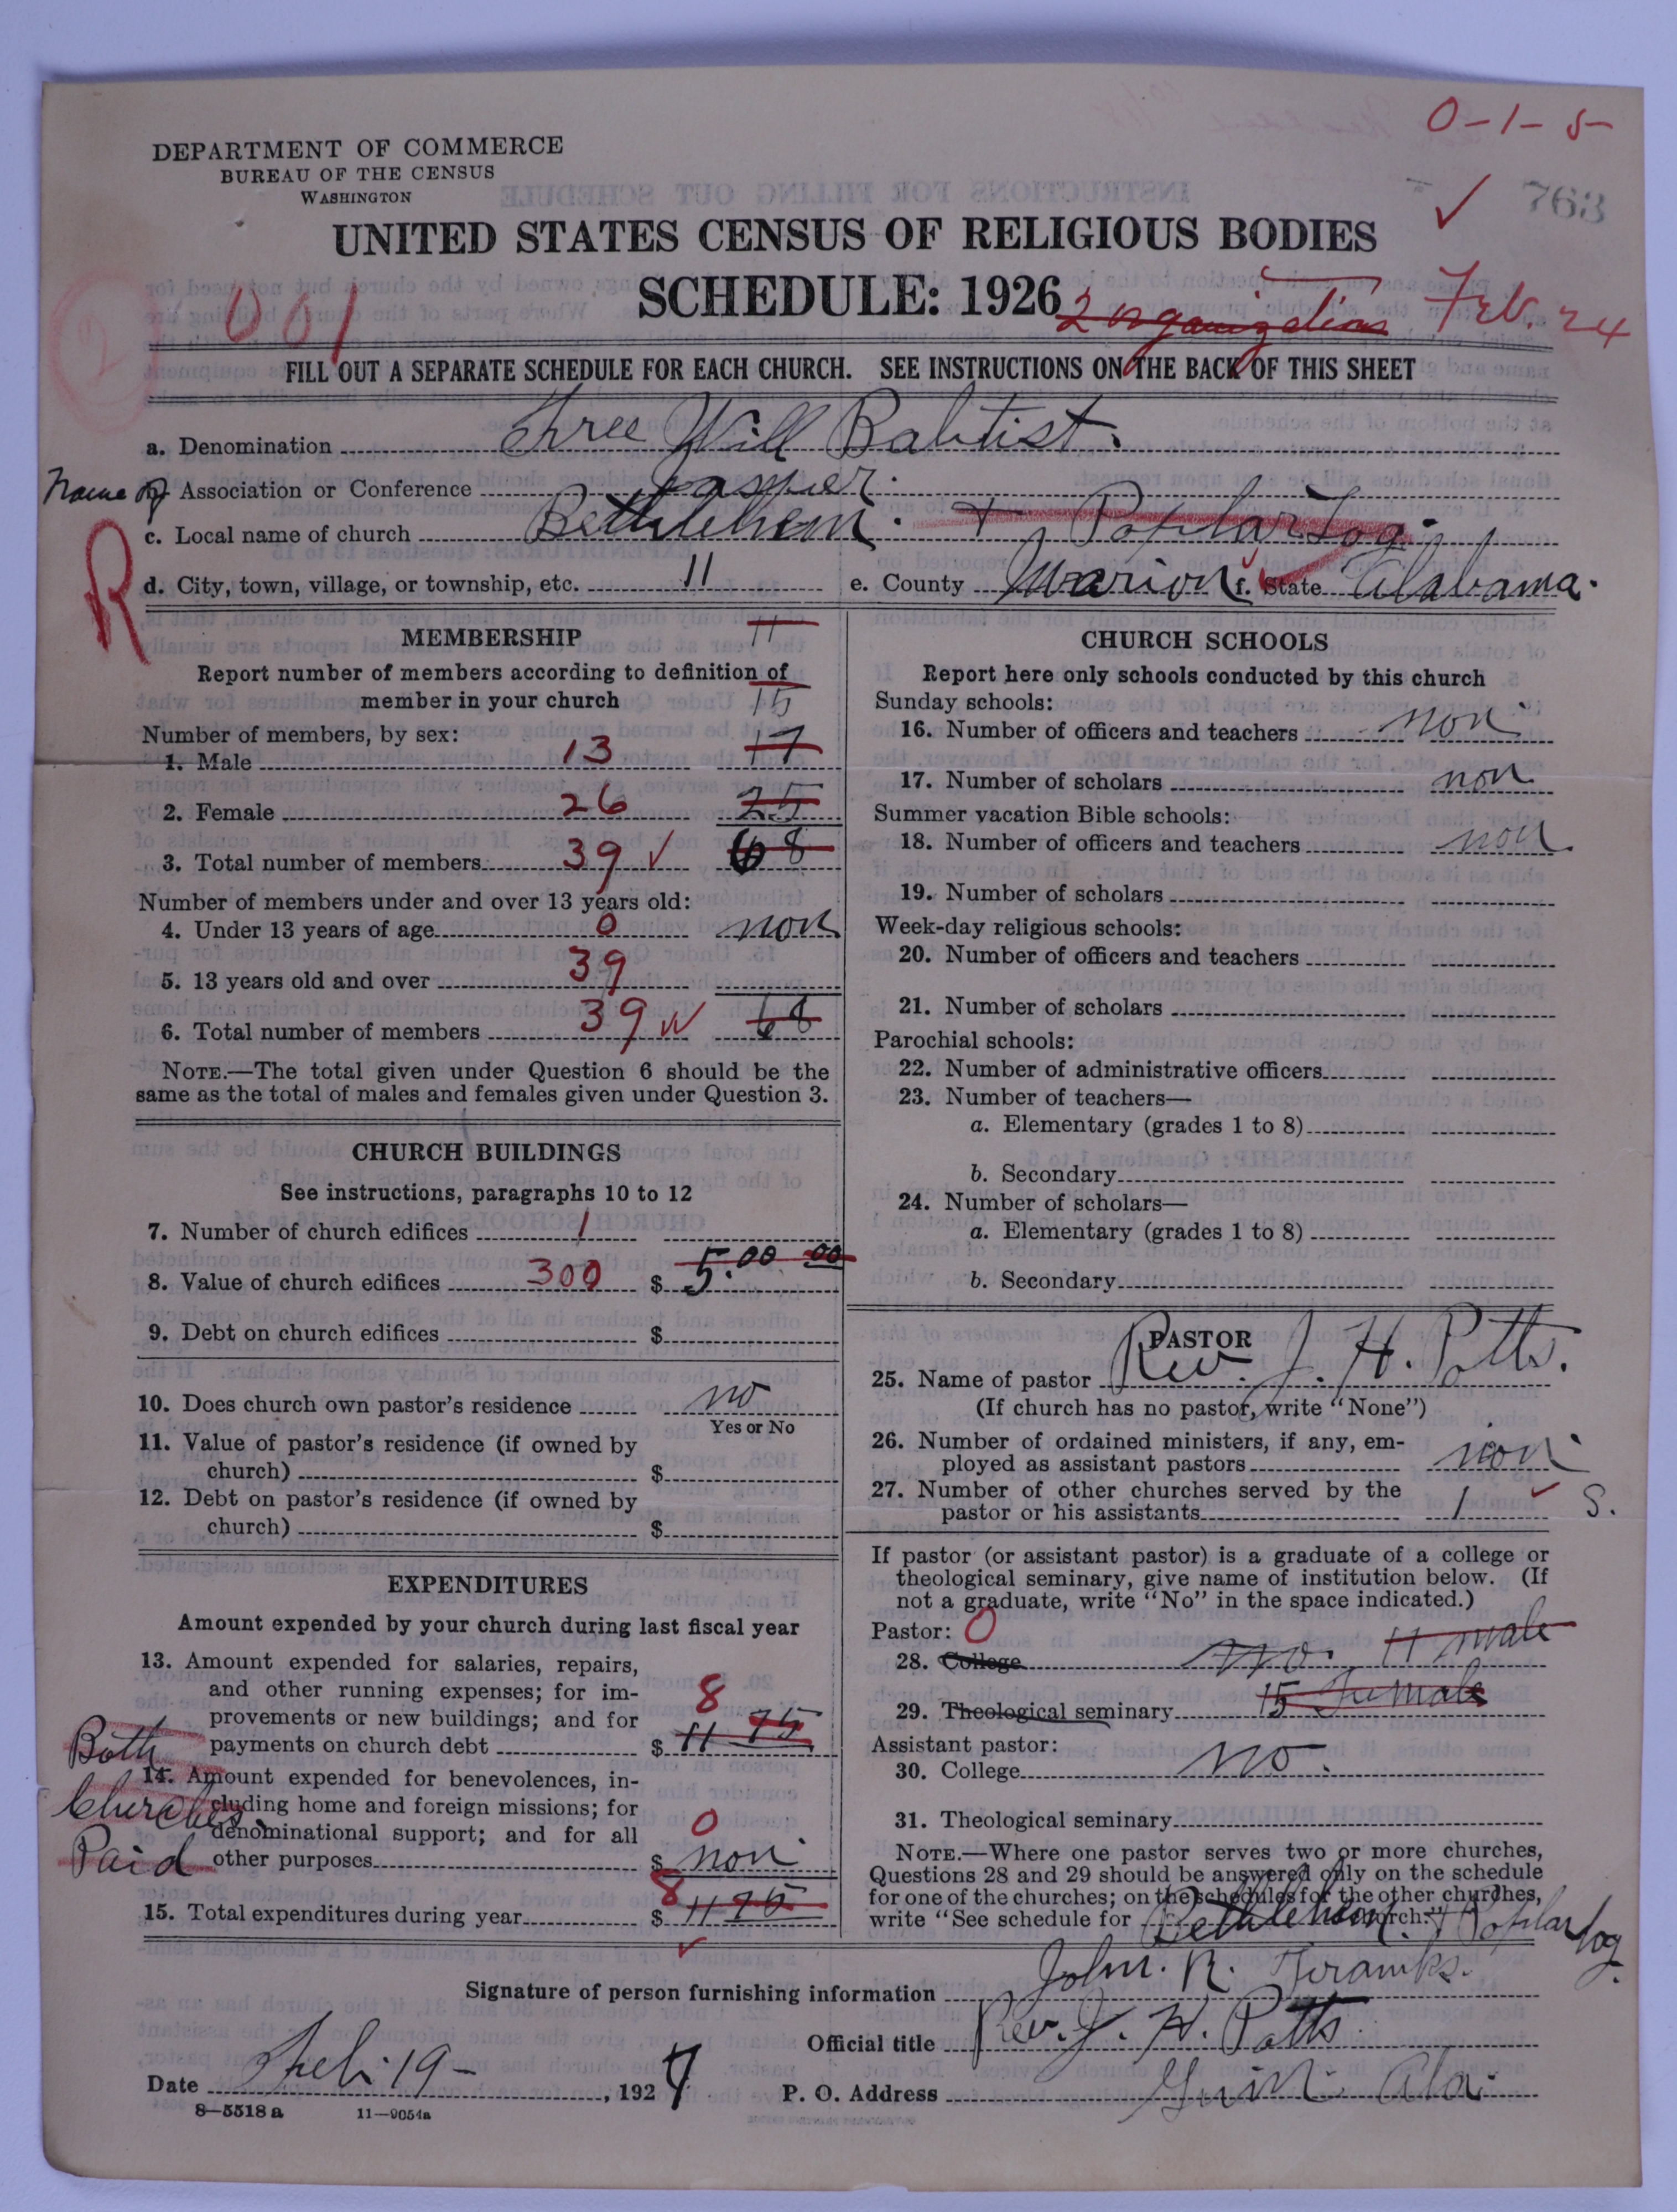 0-1-5
DEPARTMENT OF COMMERCE
BUREAU OF THE CENSUS
WASHINGTON
763
UNITED STATES CENSUS OF RELIGIOUS BODIES
SCHEDULE: 1926
001
2 organizations
Feb. 24
FILL OUT A SEPARATE SCHEDULE FOR EACH CHURCH. SEE INSTRUCTIONS ON THE BACK OF THIS SHEET
a. Denomination Free Will Babtist.
Name of Association or Conference Jasper.
R
c. Local name of church Bethlehem. + Poplar Log.
d. City, town, village, or township, etc. 11 e. County Marion f. State Alabama.
MEMBERSHIP 11
Report number of members according to definition of
member in your church 15
Number of members, by sex:
1. Male 13 17
2. Female 26 25
3. Total number of members 39 68
Number of members under and over 13 years old:
4. Under 13 years of age 0 non
5. 13 years old and over 39
6. Total number of members 39 68
NOTE.—The total given under Question 6 should be the
same as the total of males and females given under Question 3.
CHURCH BUILDINGS
See instructions, paragraphs 10 to 12
7. Number of church edifices 1
8. Value of church edifices 300 $ 5.00 00
9. Debt on church edifices $
10. Does church own pastor's residence no
Yes or No
11. Value of pastor's residence (if owned by
church) $
12. Debt on pastor's residence (if owned by
church) $
EXPENDITURES
Amount expended by your church during last fiscal year
13. Amount expended for salaries, repairs,
and other running expenses; for im-
provements or new buildings; and for 8
payments on church debt $ 11 75
Both
Churches
Paid
14. Amount expended for benevolences, in-
cluding home and foreign missions; for
denominational support; and for all 0
other purposes $ non
15. Total expenditures during year 8 $ 11 75
CHURCH SCHOOLS
Report here only schools conducted by this church
Sunday schools:
16. Number of officers and teachers non
17. Number of scholars non
Summer vacation Bible schools:
18. Number of officers and teachers non
19. Number of scholars
Week-day religious schools:
20. Number of officers and teachers
21. Number of scholars
Parochial schools:
22. Number of administrative officers
23. Number of teachers—
a. Elementary (grades 1 to 8)
b. Secondary
24. Number of scholars—
a. Elementary (grades 1 to 8)
b. Secondary
PASTOR
25. Name of pastor Rev. J. H. Potts.
(If church has no pastor, write "None")
26. Number of ordained ministers, if any, em-
ployed as assistant pastors non
27. Number of other churches served by the
pastor or his assistants 1 S.
If pastor (or assistant pastor) is a graduate of a college or
theological seminary, give name of institution below. (If
not a graduate, write "No" in the space indicated.)
Pastor: 0
28. College no. 11 male
29. Theological seminary 15 Female
Assistant pastor:
30. College no.
31. Theological seminary
NOTE.—Where one pastor serves two or more churches,
Questions 28 and 29 should be answered only on the schedule
for one of the churches; on the schedules for the other churches,
write "See schedule for Bethlehem church." + Poplar Log.
Signature of person furnishing information John. R.
Official title Rev. J. H. Potts.
Date Feb. 19 - , 1927 P. O. Address Guin. Ala.
8—5518 a 11—9054a